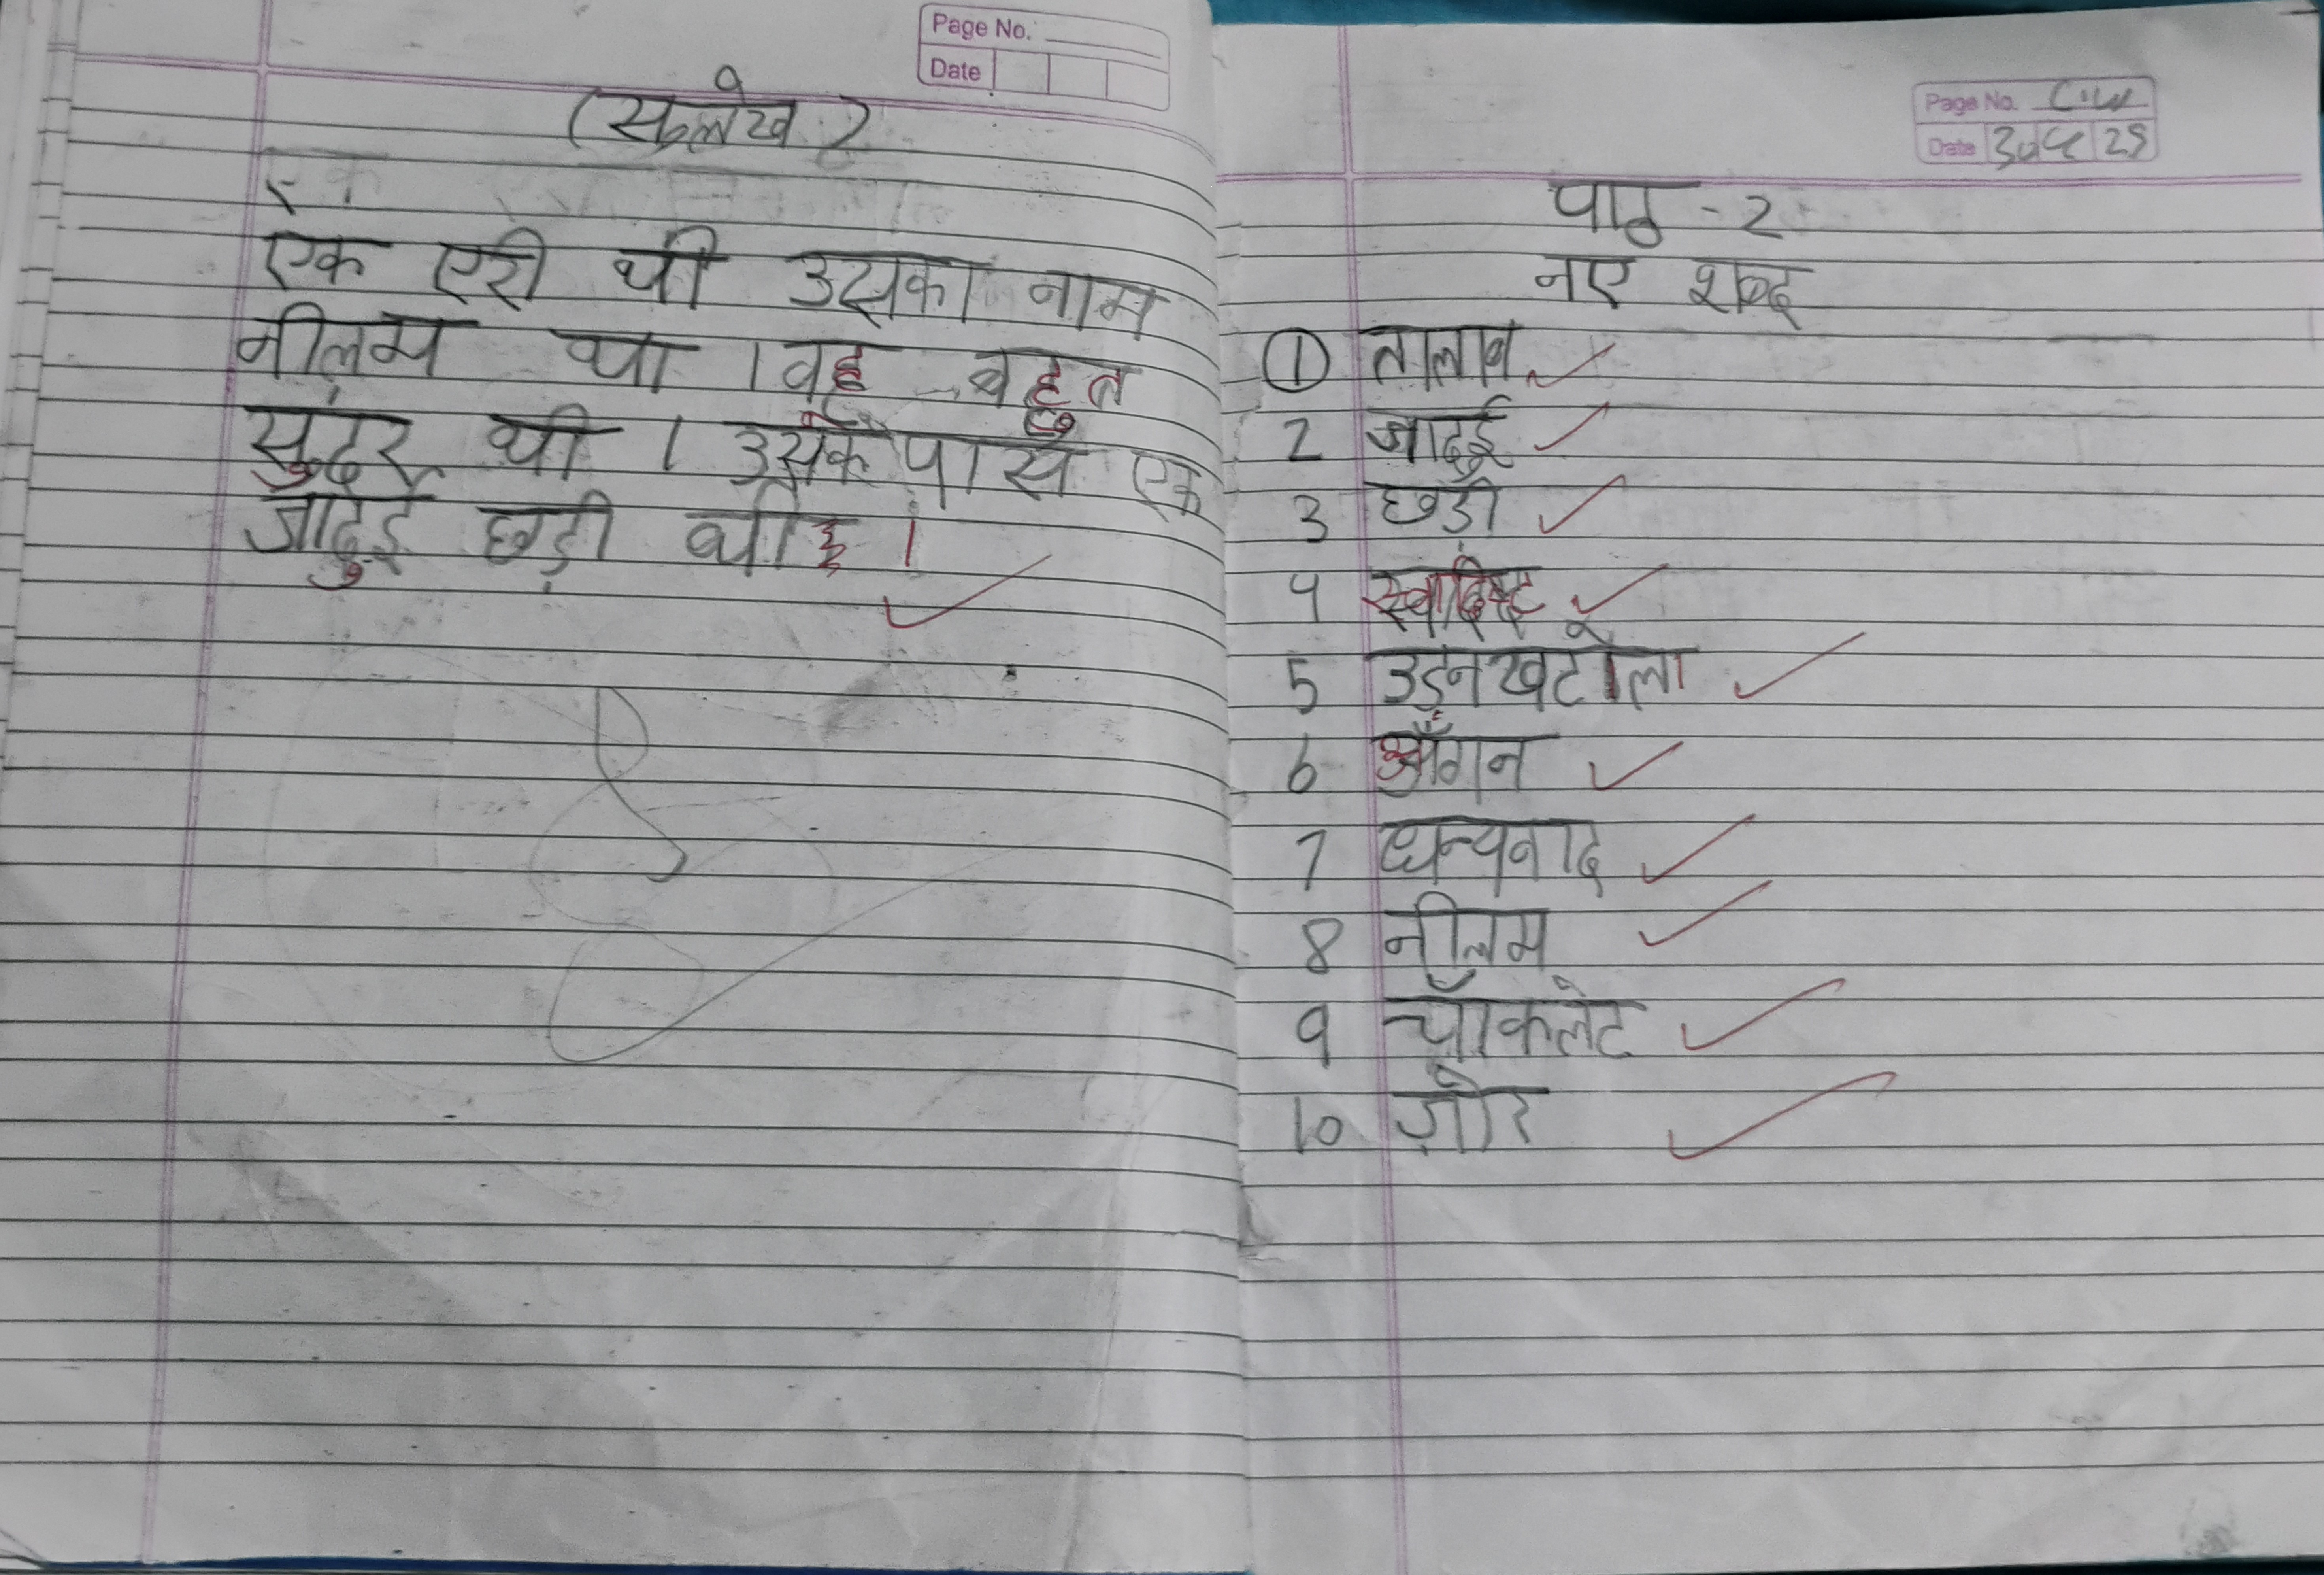 Page No.
Date
(सुलेख)
एक एरी थी उसका नाम
नीलम था । वह बहुत
सुंदर थी । उसके पास एक
जादुई छड़ी थी ।
Page No. C.W
Date 30 4 25
पाठ - 2
नए शब्द
1 तालाब
2 जादुई
3 छड़ी
4 स्वादिष्ट
5 उड़नखटोला
6 आँगन
7 धन्यवाद
8 नीलम
9 चॉकलेट
10 ज़ोर